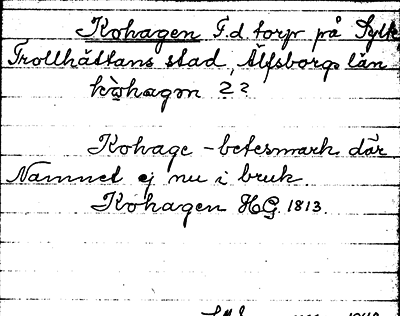 Kohagen F.d. torp på Sylk
Trollhättans stad, Älfsborgs län
kò̲hagən 2?
Kohage - betesmark där
Namnet ej nu i bruk.
Kohagen HG. 1813.